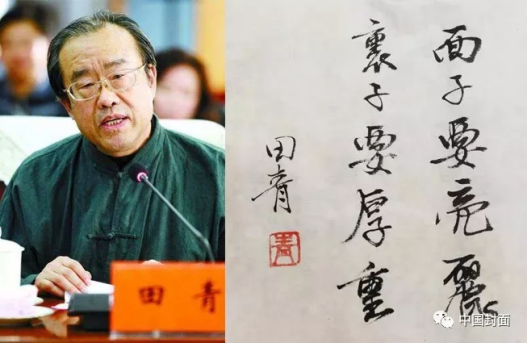 田 青
面子要亮麗
裏子要厚重
田青
青
中国封面